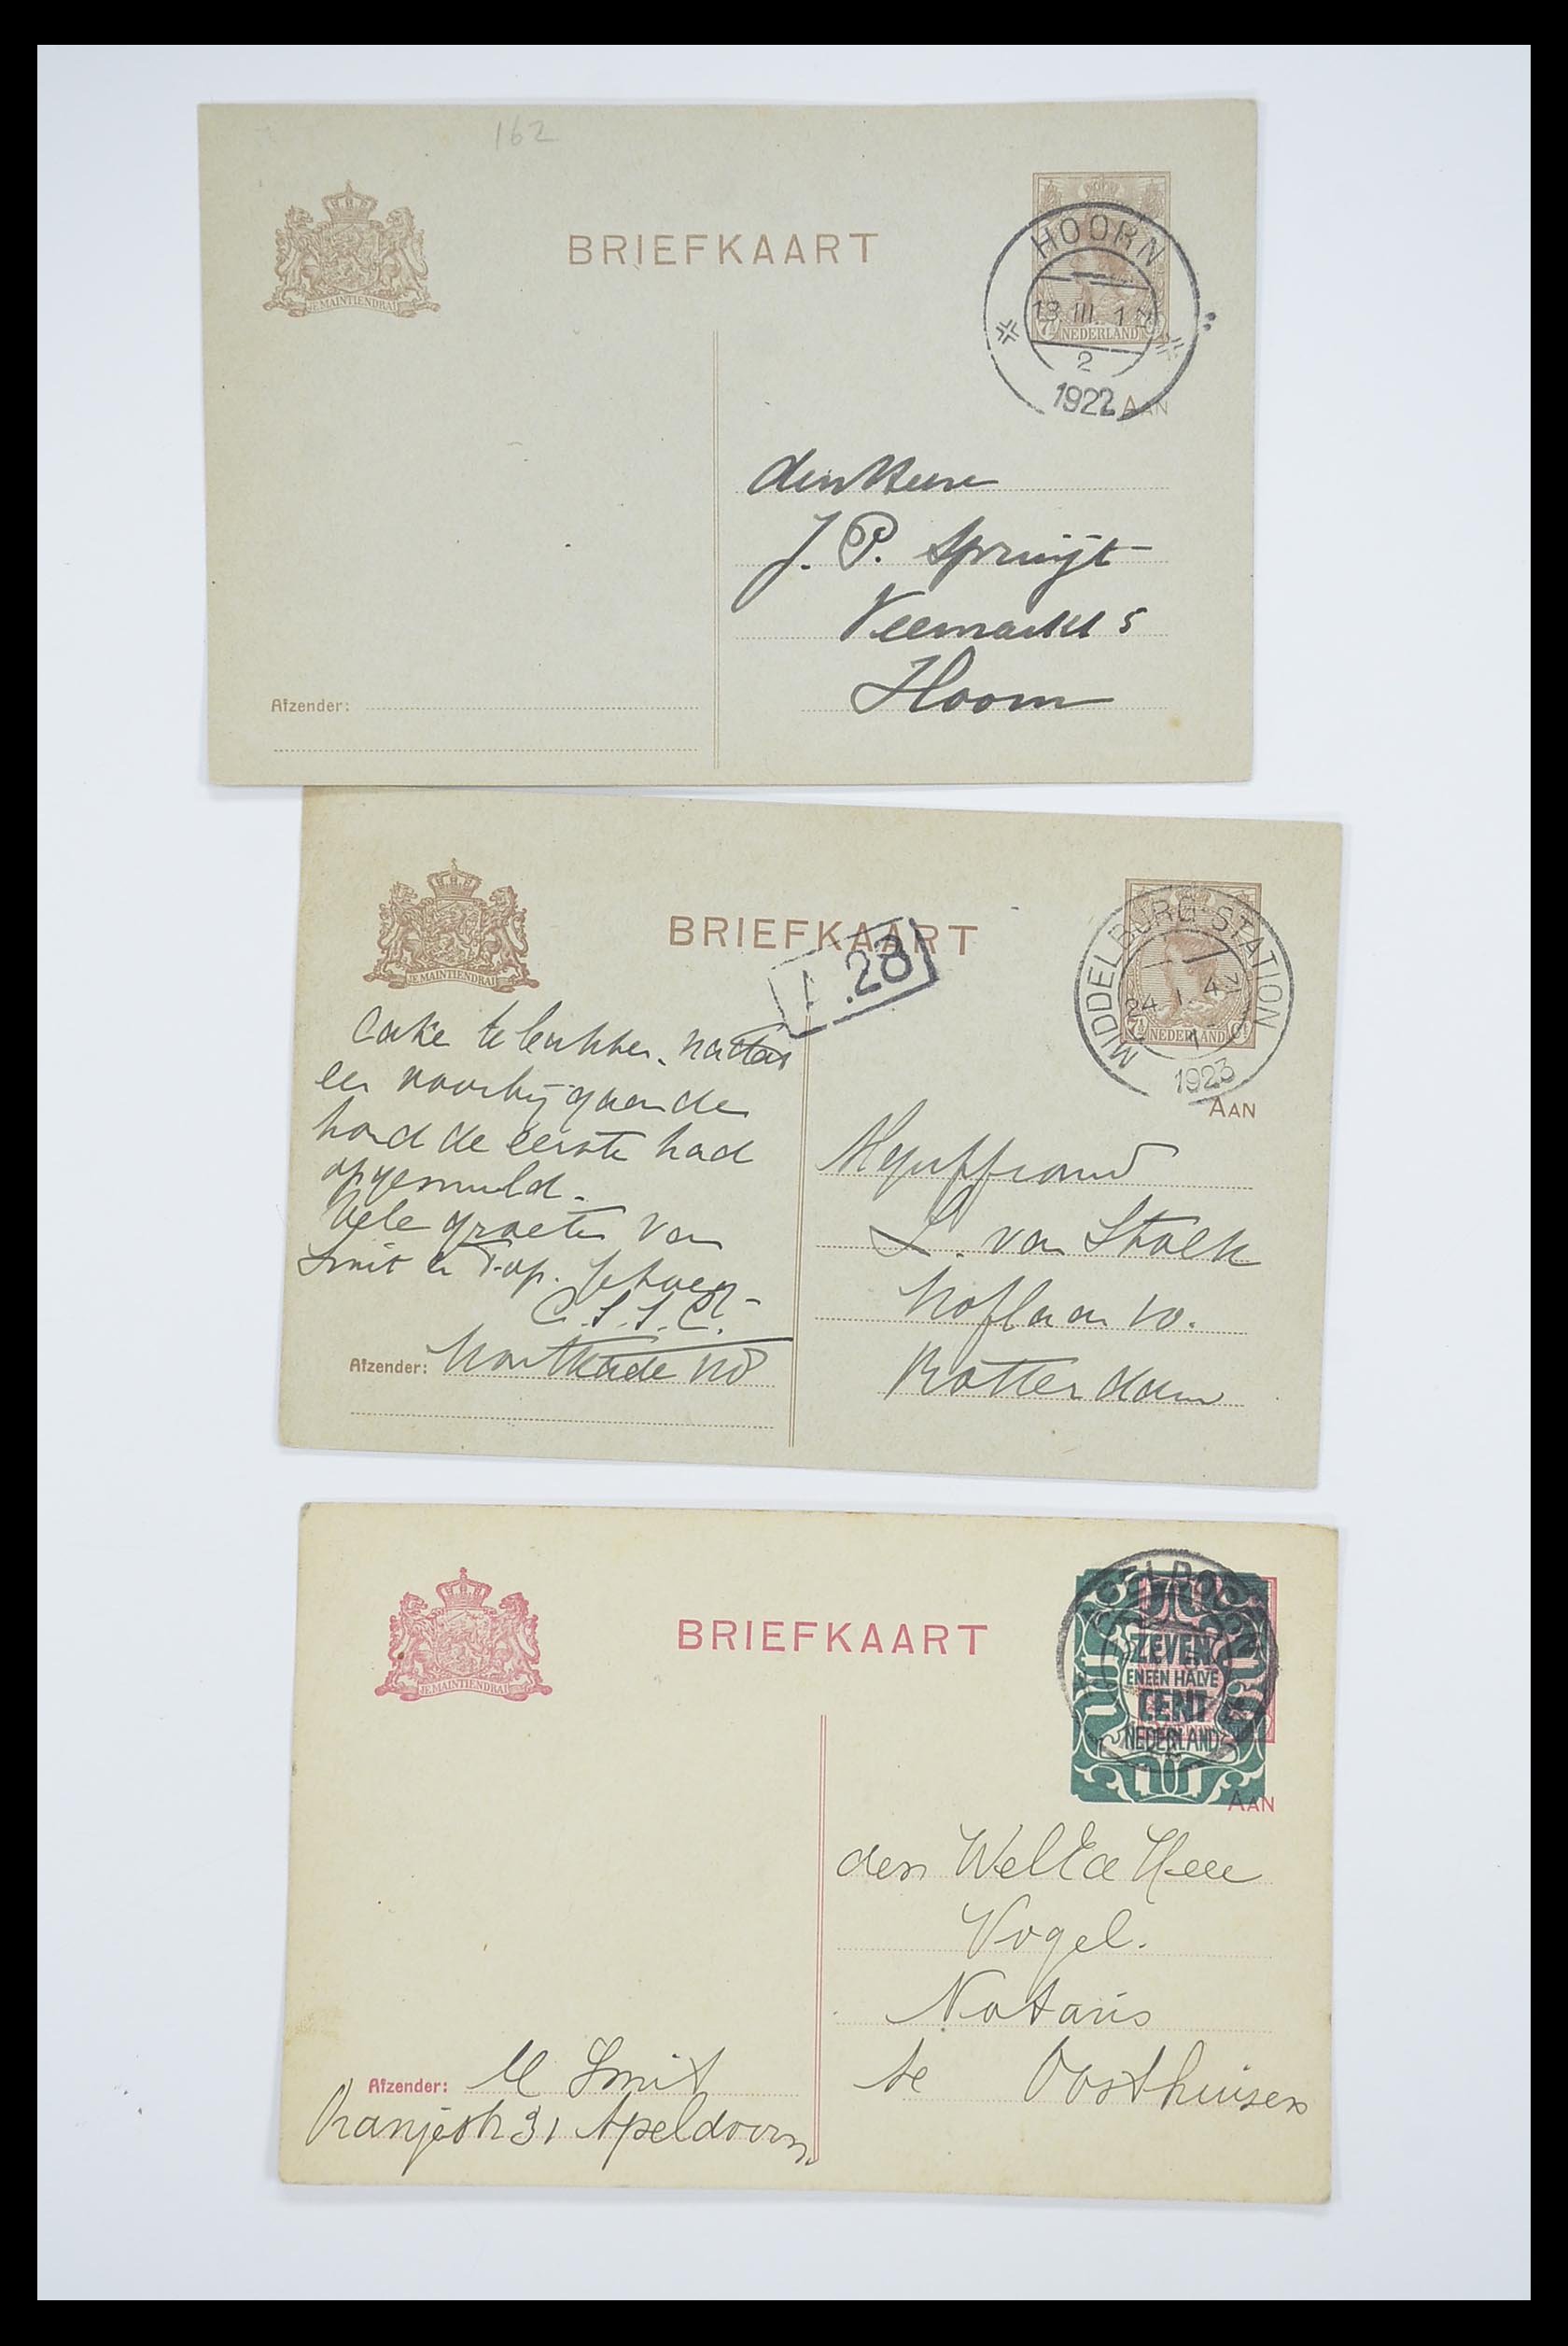 162
BRIEFKAART
JE MAINTIENDRAI
HOORN
13 III 1
2
1922
7½ NEDERLAND
AAN
den Heere
J. P. Spruijt
Veemarkt 5
Hoorn
Afzender:
BRIEFKAART
JE MAINTIENDRAI
1.28
MIDDELBURG-STATION
24 1 4
1923
7½ NEDERLAND Ct
AAN
Cake te lekker. nadat
een voorbij gaande
hond de eerste had
opgesmuld.
Vele groeten van
Smit en
C.S.S.
Afzender:
Mejuffrouw
L. van Stolk
Hoflaan 10.
Rotterdam
BRIEFKAART
JE MAINTIENDRAI
ZEVEN
EN EEN HALVE
CENT
NEDERLAND
AAN
den WelEd Heer
Vogel.
Notaris
te Oosthuizen
Afzender: M Smit
Oranjestr 31 Apeldoorn.